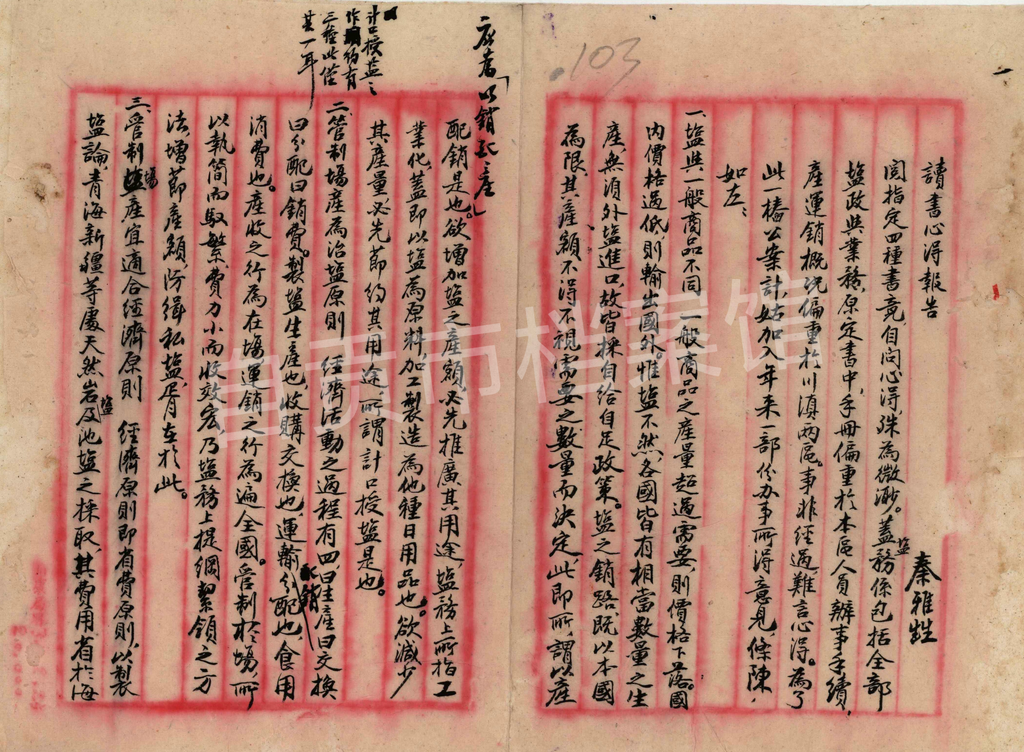 103
讀書心得報告
秦雅甡
閱指定四種書竟,自問心得,殊為微渺。蓋鹽務係包括全部
鹽政與業務,原定書中,手冊偏重於本區人員辦事手續,
產運銷概況偏重於川滇兩區。事非經過難言心得。為了
此一樁公案計,姑加入年來一部份办事所得意見,條陳
如左:
一、鹽與一般商品不同 一般商品之產量超過需要,則價格下落。國
內價格過低則輸出國外。惟鹽不然,各國皆有相當數量之生
產,無須外鹽進口,故皆採自給自足政策。鹽之銷路,既以本國
為限,其產額不得不視需要之數量而決定,此即所謂以產
配銷是也。欲增加鹽之產額,必先推廣其用途,鹽務上所指工
業化,蓋即以鹽為原料,加工製造為他種日用品也。欲減少
其產量,必先節約其用途,所謂計口授鹽是也。
應為「以銷配產」
計口授鹽之
作用約有
三種此僅
其一耳
二、管制場產為治鹽原則 經濟活動之過程有四,曰生產曰交換
曰分配曰銷費。製鹽生產也,收購交換也,運輸分配也,食用
消費也。產收之行為在場,運銷之行為遍全國。管制於場,所
以執簡而馭繁,費力小而收效宏,乃鹽務上提綱絜領之方
法,增節產額,防緝私鹽,胥在於此。
三、管制場產宜適合經濟原則 經濟原則即省費原則,以製
鹽論,青海新疆等處天然岩鹽及池鹽之採取,其費用省於海
自贡市档案馆